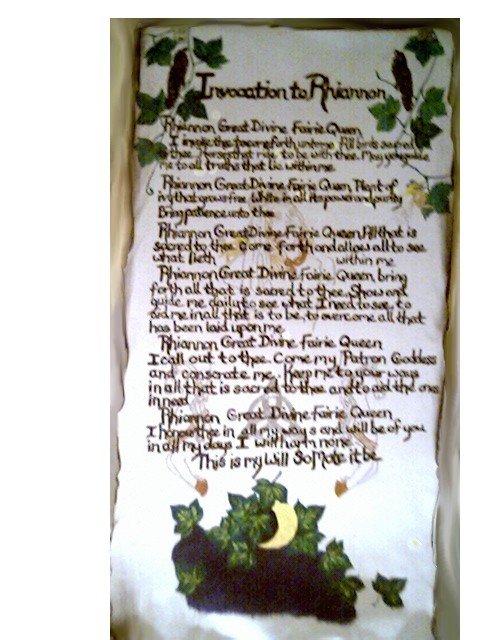 Invocation to Rhiannon
Rhiannon Great Divine Fairie Queen
I invoke thee come forth unto me All birds sacred
to thee, Horses that ride to be with thee. May you guide
me to all truths that be within me
Rhiannon Great Divine Fairie Queen, Plant of
ivy that grows free. White in all its power and purity
Bring patience unto thee
Rhiannon Great Divine Fairie Queen, All that is
sacred to thee come forth and allow all to see
what lieth within me
Rhiannon Great Divine Fairie Queen, bring
forth all that is sacred to thee. Show and
guide me daily to see what I need to see, to
aid me in all that is to be, to overcome all that
has been laid upon me
Rhiannon Great Divine Fairie Queen
I call out to thee. Come my Patron Goddess
and conscrate me. Keep me to your ways
in all that is sacred to thee and to aid the one
in need
Rhiannon Great Divine Fairie Queen
I honor thee in all my ways and will be of you
in all my days I will harm none
This is my Will So Mote it be